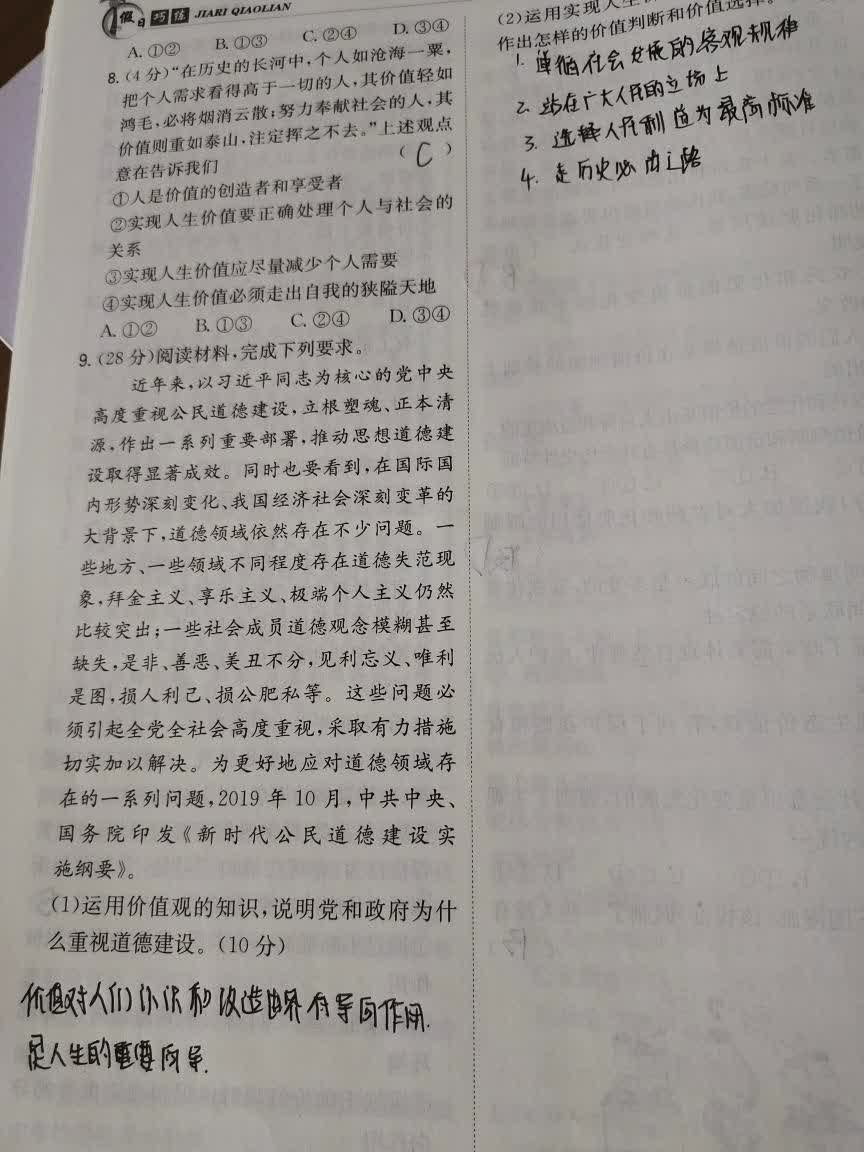 假日巧练 JIARI QIAOLIAN
A. ①② B. ①③ C. ②④ D. ③④
8. (4分)“在历史的长河中,个人如沧海一粟,
把个人需求看得高于一切的人,其价值轻如
鸿毛,必将烟消云散;努力奉献社会的人,其
价值则重如泰山,注定挥之不去。”上述观点
意在告诉我们 ( C )
①人是价值的创造者和享受者
②实现人生价值要正确处理个人与社会的
关系
③实现人生价值应尽量减少个人需要
④实现人生价值必须走出自我的狭隘天地
A. ①② B. ①③ C. ②④ D. ③④
9. (28分)阅读材料,完成下列要求。
近年来,以习近平同志为核心的党中央
高度重视公民道德建设,立根塑魂、正本清
源,作出一系列重要部署,推动思想道德建
设取得显著成效。同时也要看到,在国际国
内形势深刻变化、我国经济社会深刻变革的
大背景下,道德领域依然存在不少问题。一
些地方、一些领域不同程度存在道德失范现
象,拜金主义、享乐主义、极端个人主义仍然
比较突出;一些社会成员道德观念模糊甚至
缺失,是非、善恶、美丑不分,见利忘义、唯利
是图,损人利己、损公肥私等。这些问题必
须引起全党全社会高度重视,采取有力措施
切实加以解决。为更好地应对道德领域存
在的一系列问题,2019年10月,中共中央、
国务院印发《新时代公民道德建设实
施纲要》。
(1)运用价值观的知识,说明党和政府为什
么重视道德建设。(10分)
价值对人们认识和改造世界有导向作用.
是人生的重要向导.
(2)运用实现人生
作出怎样的价值判断和价值选择。
1. 遵循社会发展的客观规律
2. 站在广大人民的立场上
3. 选择人民利益为最高标准
4. 走历史必由之路